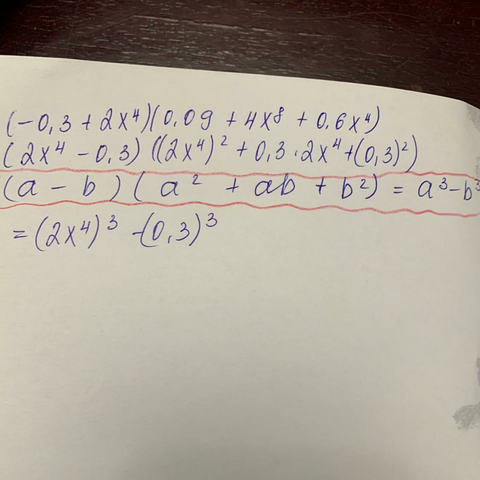 (-0,3 + 2x⁴)(0.09 + 4x⁸ + 0.6x⁴)
(2x⁴ - 0,3) ((2x⁴)² + 0,3 · 2x⁴ + (0,3)²)
(a - b) (a² + ab + b²) = a³ - b³
= (2x⁴)³ - (0,3)³